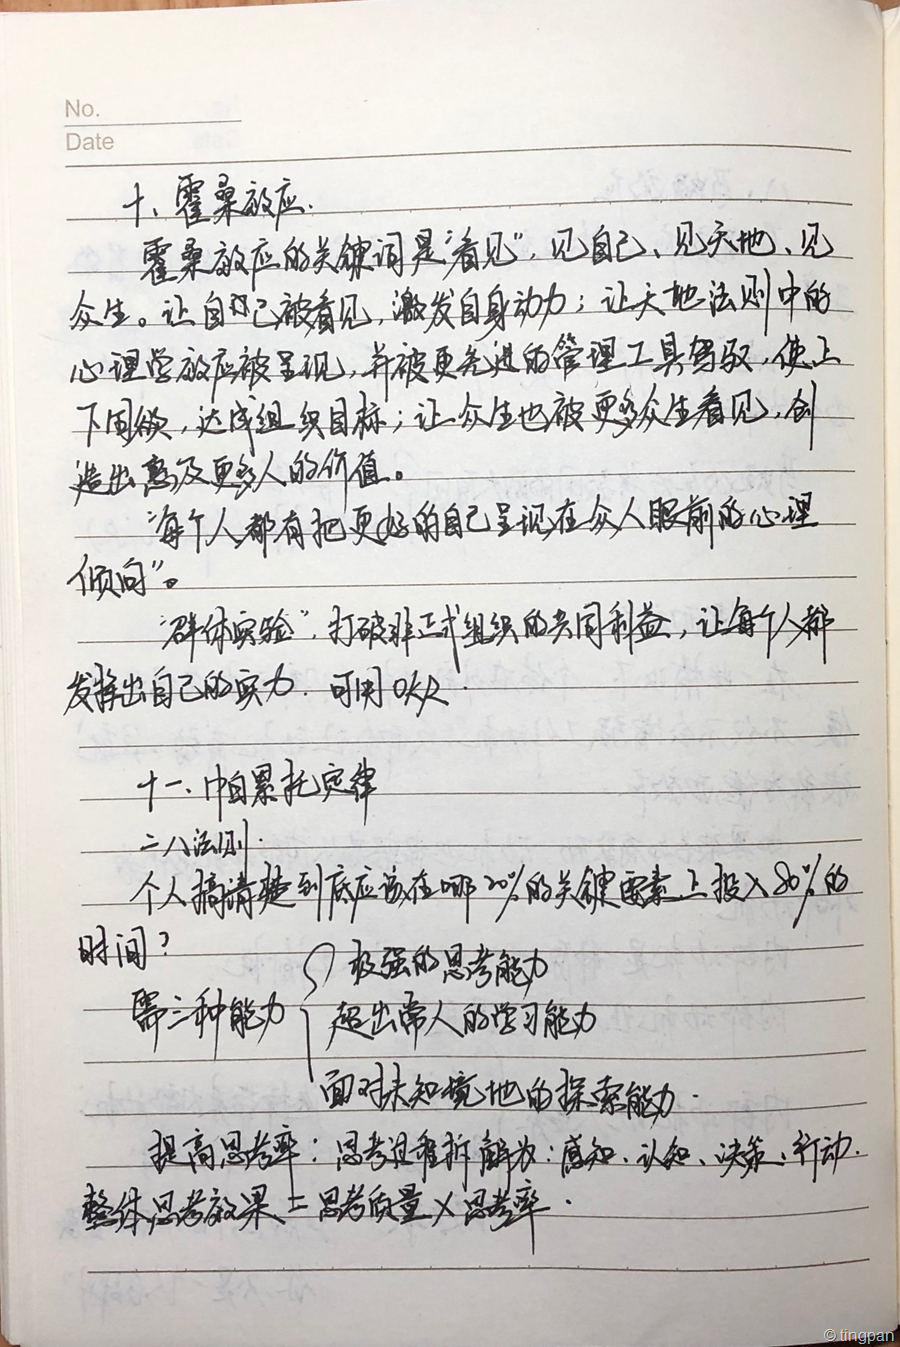 No.
Date
十、霍桑效应.
霍桑效应的关键词是“看见”，见自己、见天地、见
众生。让自己被看见，激发自身动力；让天地法则中的
心理学效应被呈现，并被更先进的管理工具驾驭，使上
下同欲，达成组织目标；让众生也被更多众生看见，创
造出惠及更多人的价值。
“每个人都有把更好的自己呈现在众人眼前的心理
倾向”。
“群体实验”，打破非正式组织的共同利益，让每个人都
发挥出自己的实力. 可用OKR.
十一、帕累托定律
二八法则.
个人搞清楚到底应该在哪20%的关键要素上投入80%的
时间？
极强的思考能力
需三种能力 超出常人的学习能力
面对未知境地的探索能力.
提高思考率：思考过程拆解为：感知、认知、决策、行动.
整体思考效果=思考质量×思考率.
© tingpan